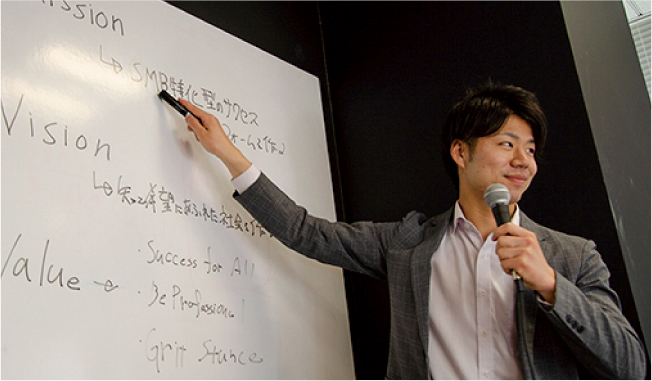 ission
↳ SMB特化型のサクセス
フォームを作る
Vision
↳ 希望にあふれた社会を作
Value →
・Success for All
・Be Professional
・Grit Stance